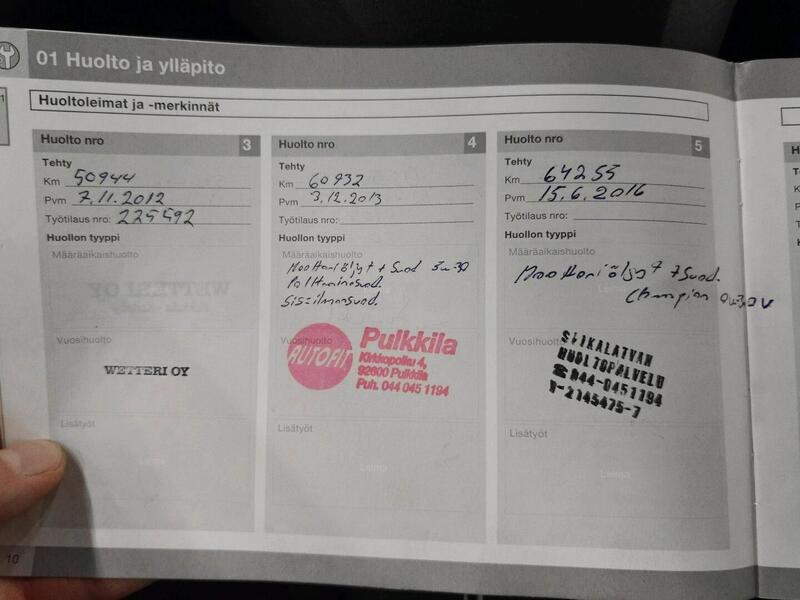 01 Huolto ja ylläpito
Huoltoleimat ja -merkinnät
Huolto nro 3
Tehty
Km 50944
Pvm 7.11.2012
Työtilaus nro: 225592
Huollon tyyppi
Määräaikaishuolto
WETTERI OY
Vuosihuolto
WETTERI OY
Lisätyöt
Leima
Huolto nro 4
Tehty
Km 60932
Pvm 3.12.2013
Työtilaus nro:
Huollon tyyppi
Määräaikaishuolto
Moottoriöljyt + Suod 5w-30
Polttoainesuod.
Sisäilmansuod.
Vuosihuolto
AUTOFIT
Pulkkila
Kirkkopolku 4,
92600 Pulkkila
Puh. 044 045 1194
Lisätyöt
Leima
Huolto nro 5
Tehty
Km 64255
Pvm 15.6.2016
Työtilaus nro:
Huollon tyyppi
Määräaikaishuolto
Moottoriöljyt + suod.
Leima
Champion
Vuosihuolto
SIIKALATVAN
HUOLTOPALVELU
☎044-0451194
Y-2145475-7
Lisätyöt
Leima
10